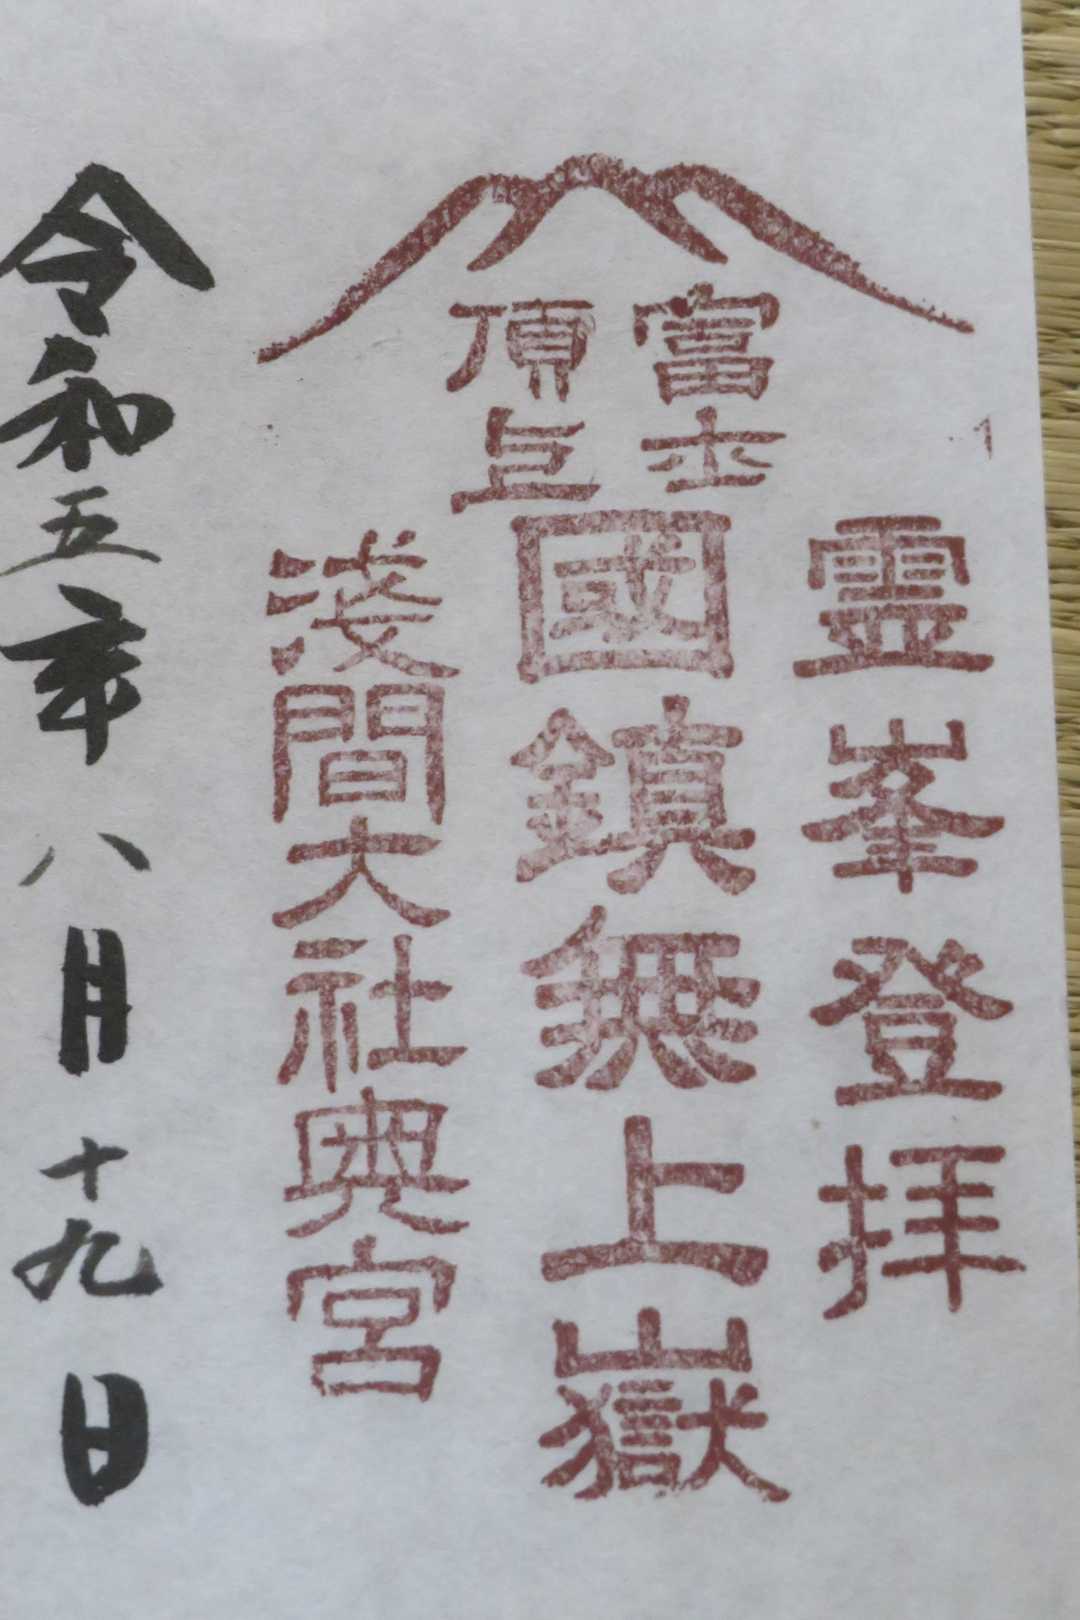 富士
頂上
霊峯登拝
國鎮無上嶽
浅間大社奥宮
令和五年八月十九日